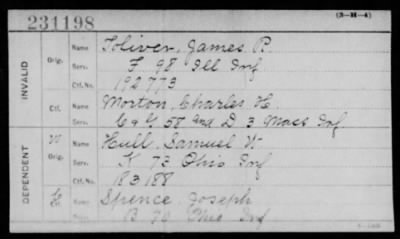 231198
(3-H-4)
INVALID
Orig. Name Toliver, James P.
Serv. F 98 Ill Inf
Ctf. No. 192773
Ctf. Name Morton, Charles H.
Serv. C & G 58 and D 3 Mass Inf
DEPENDENT
W Orig. Name Hull, Samuel W.
Serv. K 73 Ohio Inf
Ctf. No. 183188
Ctf. Name Spence Joseph
Serv. B 70 Ohio Inf